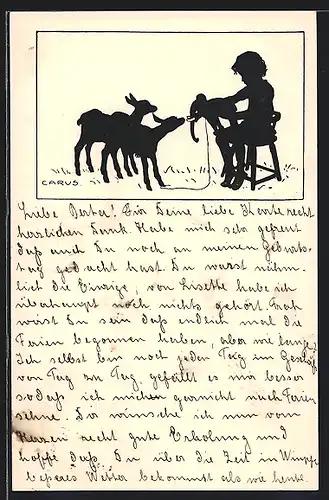 CARUS.
Liebe Berta! Für Deine liebe Karte recht
herzlichen Dank. Habe mich sehr gefreut
daß auch Du noch an meinen Geburts-
tag gedacht hast. Du warst näm-
lich die Einzige, von Lisette habe ich
überhaupt noch nichts gehört. Froh
wirst Du sein daß endlich mal die
Ferien begonnen haben, aber wie lange?
Ich selbst bin noch jeden Tag im Geschäft
von Tag zu Tag gefällt es mir besser
sodaß ich mich garnicht nach Ferien
sehne. Dir wünsche ich nun von
Herzen recht gute Erholung und
hoffe daß Du über die Zeit in
besseres Wetter bekommst als wie heute.